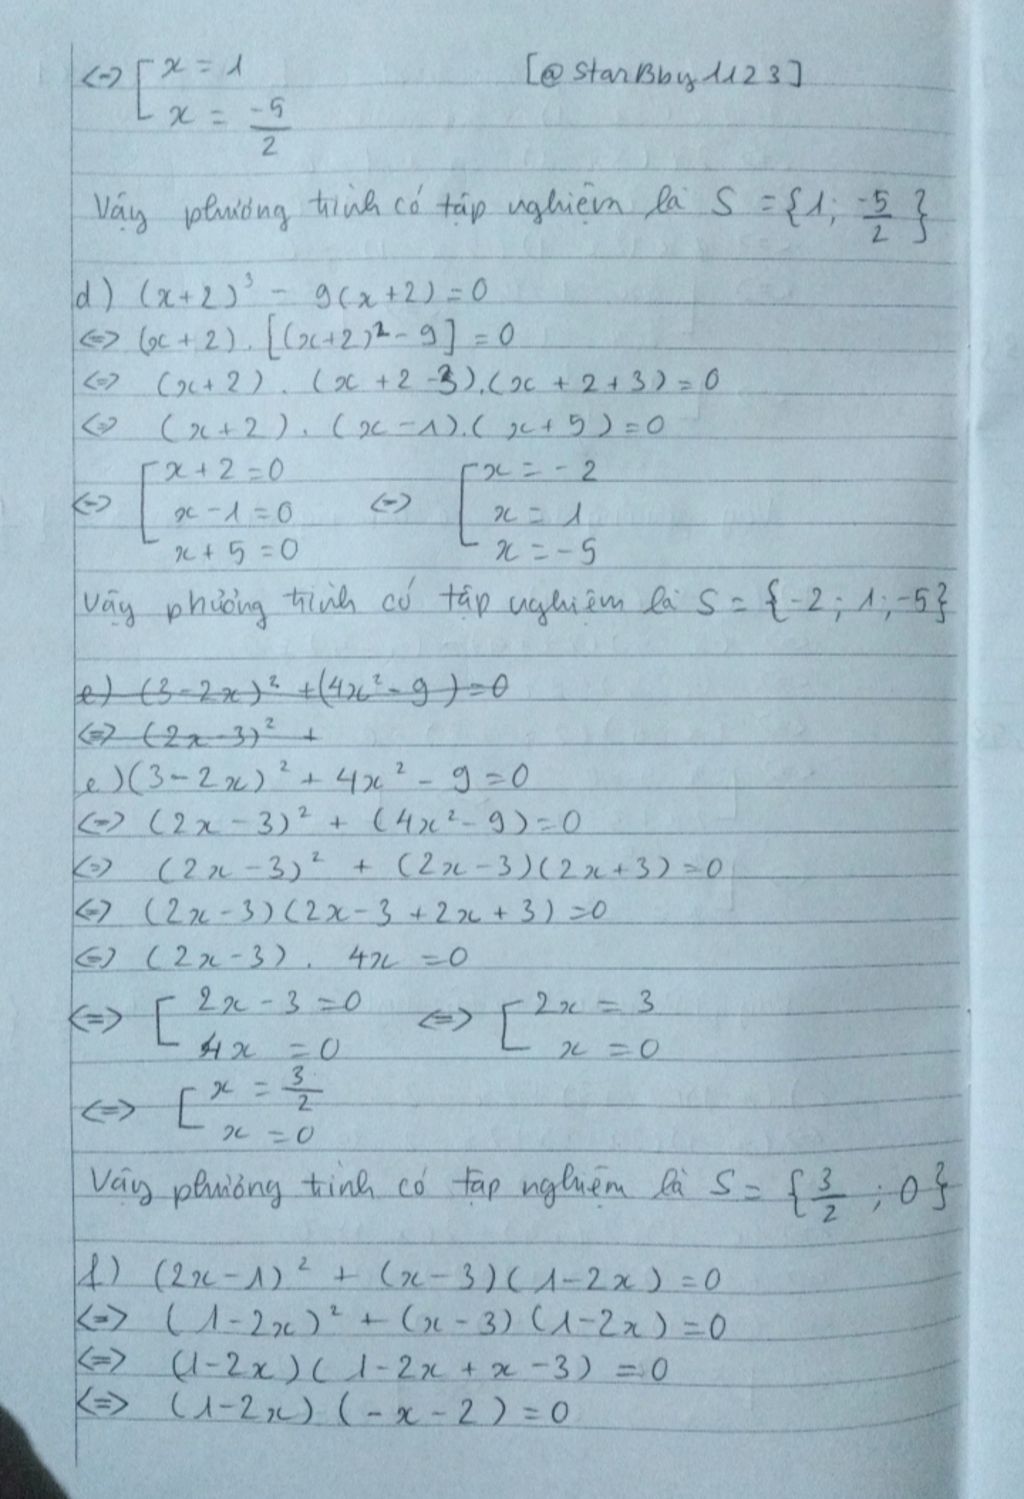 <=> [ x = 1 [@ starBby1123]
x = -5/2
Vậy phương trình có tập nghiệm là S = {1; -5/2}
d) (x+2)³ - 9(x+2)=0
<=> (x+2).[(x+2)²-9]=0
<=> (x+2).(x+2-3).(x+2+3)=0
<=> (x+2).(x-1).(x+5)=0
[ x+2=0 [ x=-2
<=> x-1=0 <=> x=1
x+5=0 x=-5
Vậy phương trình có tập nghiệm là S = {-2; 1; -5}
e) (3-2x)² +(4x²-9)=0
<=> (2x-3)² +
e)(3-2x)² + 4x² - 9=0
<=> (2x-3)² + (4x²-9)=0
<=> (2x-3)² + (2x-3)(2x+3)=0
<=> (2x-3)(2x-3+2x+3)=0
<=> (2x-3). 4x =0
<=> [ 2x-3=0 <=> [ 2x = 3
4x =0 x =0
<=> [ x = 3/2
x =0
Vậy phương trình có tập nghiệm là S= {3/2 ; 0}
f) (2x-1)² + (x-3)(1-2x)=0
<=> (1-2x)² + (x-3)(1-2x)=0
<=> (1-2x)(1-2x+x-3)=0
<=> (1-2x)(-x-2)=0